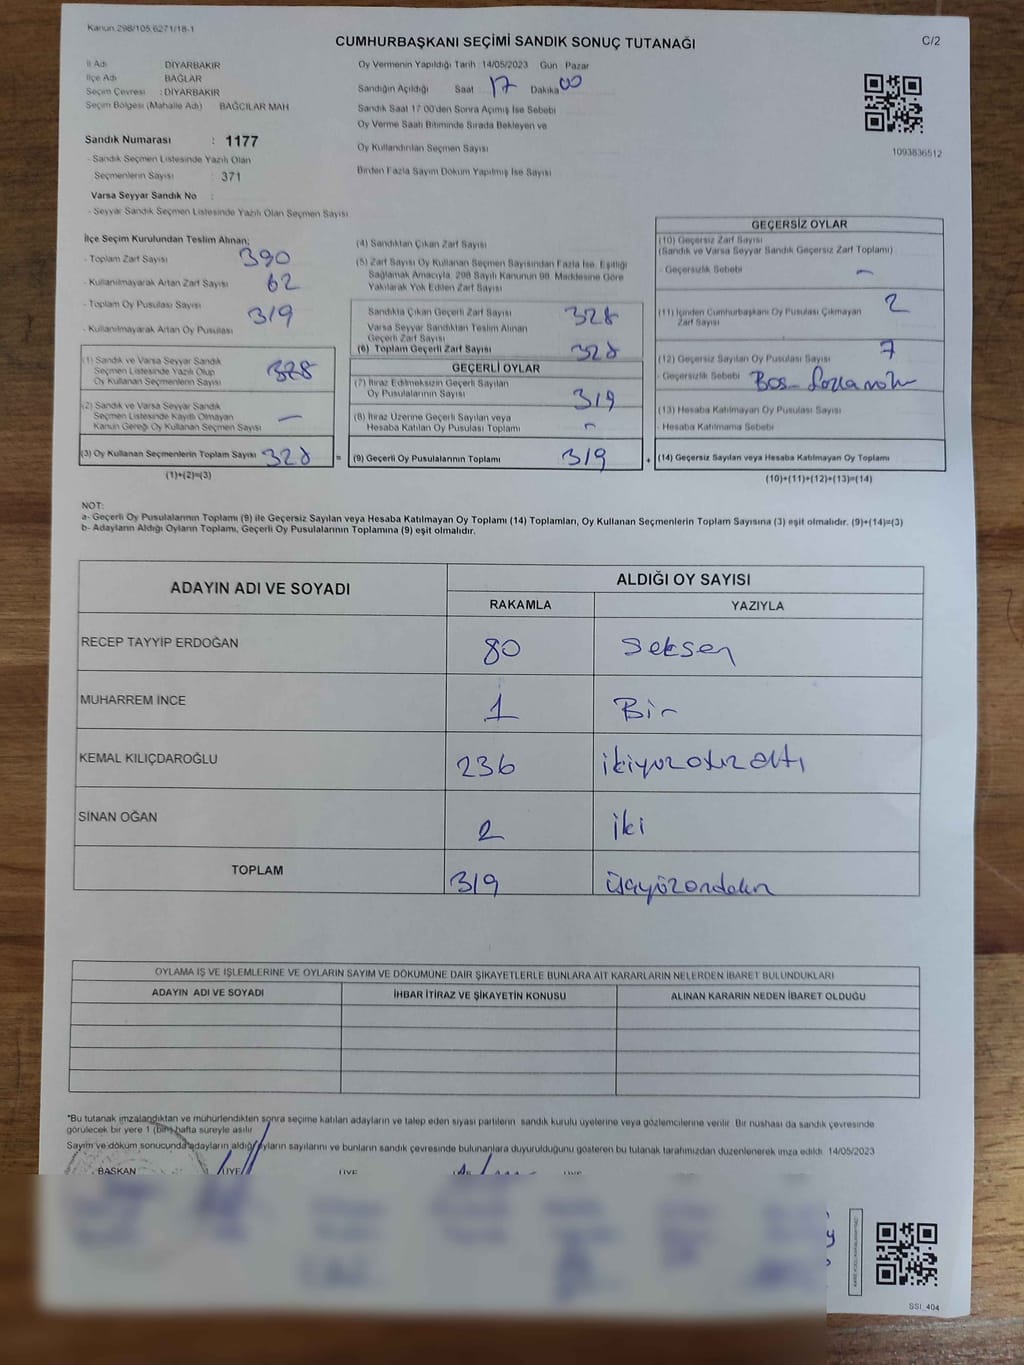 Kanun 298/105 6271/18-1
CUMHURBAŞKANI SEÇİMİ SANDIK SONUÇ TUTANAĞI
C/2
İl Adı DİYARBAKIR
İlçe Adı BAĞLAR
Seçim Çevresi : DİYARBAKIR
Seçim Bölgesi (Mahalle Adı) BAĞCILAR MAH
Oy Vermenin Yapıldığı Tarih 14/05/2023 Gün Pazar
Sandığın Açıldığı Saat 17 Dakika 00
Sandık Saat 17 00'den Sonra Açımış İse Sebebi
Oy Verme Saati Bitiminde Sırada Bekleyen ve
Oy Kullandırılan Seçmen Sayısı
Birden Fazla Sayım Döküm Yapılmış İse Sayısı
1093836512
Sandık Numarası : 1177
- Sandık Seçmen Listesinde Yazılı Olan
Seçmenlerin Sayısı : 371
Varsa Seyyar Sandık No :
- Seyyar Sandık Seçmen Listesinde Yazılı Olan Seçmen Sayısı
İlçe Seçim Kurulundan Teslim Alınan;
- Toplam Zarf Sayısı 390
- Kullanılmayarak Artan Zarf Sayısı 62
- Toplam Oy Pusulası Sayısı 319
- Kullanılmayarak Artan Oy Pusulası
(1) Sandık ve Varsa Seyyar Sandık
Seçmen Listesinde Yazılı Olup
Oy Kullanan Seçmenlerin Sayısı 328
(2) Sandık ve Varsa Seyyar Sandık
Seçmen Listesinde Kayıtlı Olmayan
Kanun Gereği Oy Kullanan Seçmen Sayısı —
(3) Oy Kullanan Seçmenlerin Toplam Sayısı 328
(1)+(2)=(3)
(4) Sandıktan Çıkan Zarf Sayısı
(5) Zarf Sayısı Oy Kullanan Seçmen Sayısından Fazla İse, Eşitliği
Sağlamak Amacıyla, 298 Sayılı Kanunun 98. Maddesine Göre
Yakılarak Yok Edilen Zarf Sayısı
Sandıkta Çıkan Geçerli Zarf Sayısı 328
Varsa Seyyar Sandıktan Teslim Alınan
Geçerli Zarf Sayısı
(6) Toplam Geçerli Zarf Sayısı 328
GEÇERLİ OYLAR
(7) İtiraz Edilmeksizin Geçerli Sayılan
Oy Pusulalarının Sayısı 319
(8) İtiraz Üzerine Geçerli Sayılan veya
Hesaba Katılan Oy Pusulası Toplamı -
= (9) Geçerli Oy Pusulalarının Toplamı 319
GEÇERSİZ OYLAR
(10) Geçersiz Zarf Sayısı
(Sandık ve Varsa Seyyar Sandık Geçersiz Zarf Toplamı)
- Geçersizlik Sebebi -
(11) İçinden Cumhurbaşkanı Oy Pusulası Çıkmayan
Zarf Sayısı 2
(12) Geçersiz Sayılan Oy Pusulası Sayısı 7
- Geçersizlik Sebebi Boş
(13) Hesaba Katılmayan Oy Pusulası Sayısı
- Hesaba Katılmama Sebebi
+ (14) Geçersiz Sayılan veya Hesaba Katılmayan Oy Toplamı
(10)+(11)+(12)+(13)=(14)
NOT:
a- Geçerli Oy Pusulalarının Toplamı (9) ile Geçersiz Sayılan veya Hesaba Katılmayan Oy Toplamı (14) Toplamları, Oy Kullanan Seçmenlerin Toplam Sayısına (3) eşit olmalıdır. (9)+(14)=(3)
b- Adayların Aldığı Oyların Toplamı, Geçerli Oy Pusulalarının Toplamına (9) eşit olmalıdır.
ADAYIN ADI VE SOYADI ALDIĞI OY SAYISI
RAKAMLA YAZIYLA
RECEP TAYYİP ERDOĞAN 80 Seksen
MUHARREM İNCE 1 Bir
KEMAL KILIÇDAROĞLU 236 ikiyüzotuzaltı
SİNAN OĞAN 2 iki
TOPLAM 319 üçyüzondokuz
OYLAMA İŞ VE İŞLEMLERİNE VE OYLARIN SAYIM VE DÖKÜMÜNE DAİR ŞİKAYETLERLE BUNLARA AİT KARARLARIN NELERDEN İBARET BULUNDUKLARI
ADAYIN ADI VE SOYADI İHBAR İTİRAZ VE ŞİKAYETİN KONUSU ALINAN KARARIN NEDEN İBARET OLDUĞU
*Bu tutanak imzalandıktan ve mühürlendikten sonra seçime katılan adayların ve talep eden siyasi partilerin sandık kurulu üyelerine veya gözlemcilerine verilir. Bir nüshası da sandık çevresinde
görülecek bir yere 1 (bir) hafta süreyle asılır
Sayım ve döküm sonucunda adayların aldığı oyların sayılarını ve bunların sandık çevresinde bulunanlara duyurulduğunu gösteren bu tutanak tarafımızdan düzenlenerek imza edildi. 14/05/2023
BAŞKAN ÜYE ÜYE ÜYE
SSI_404